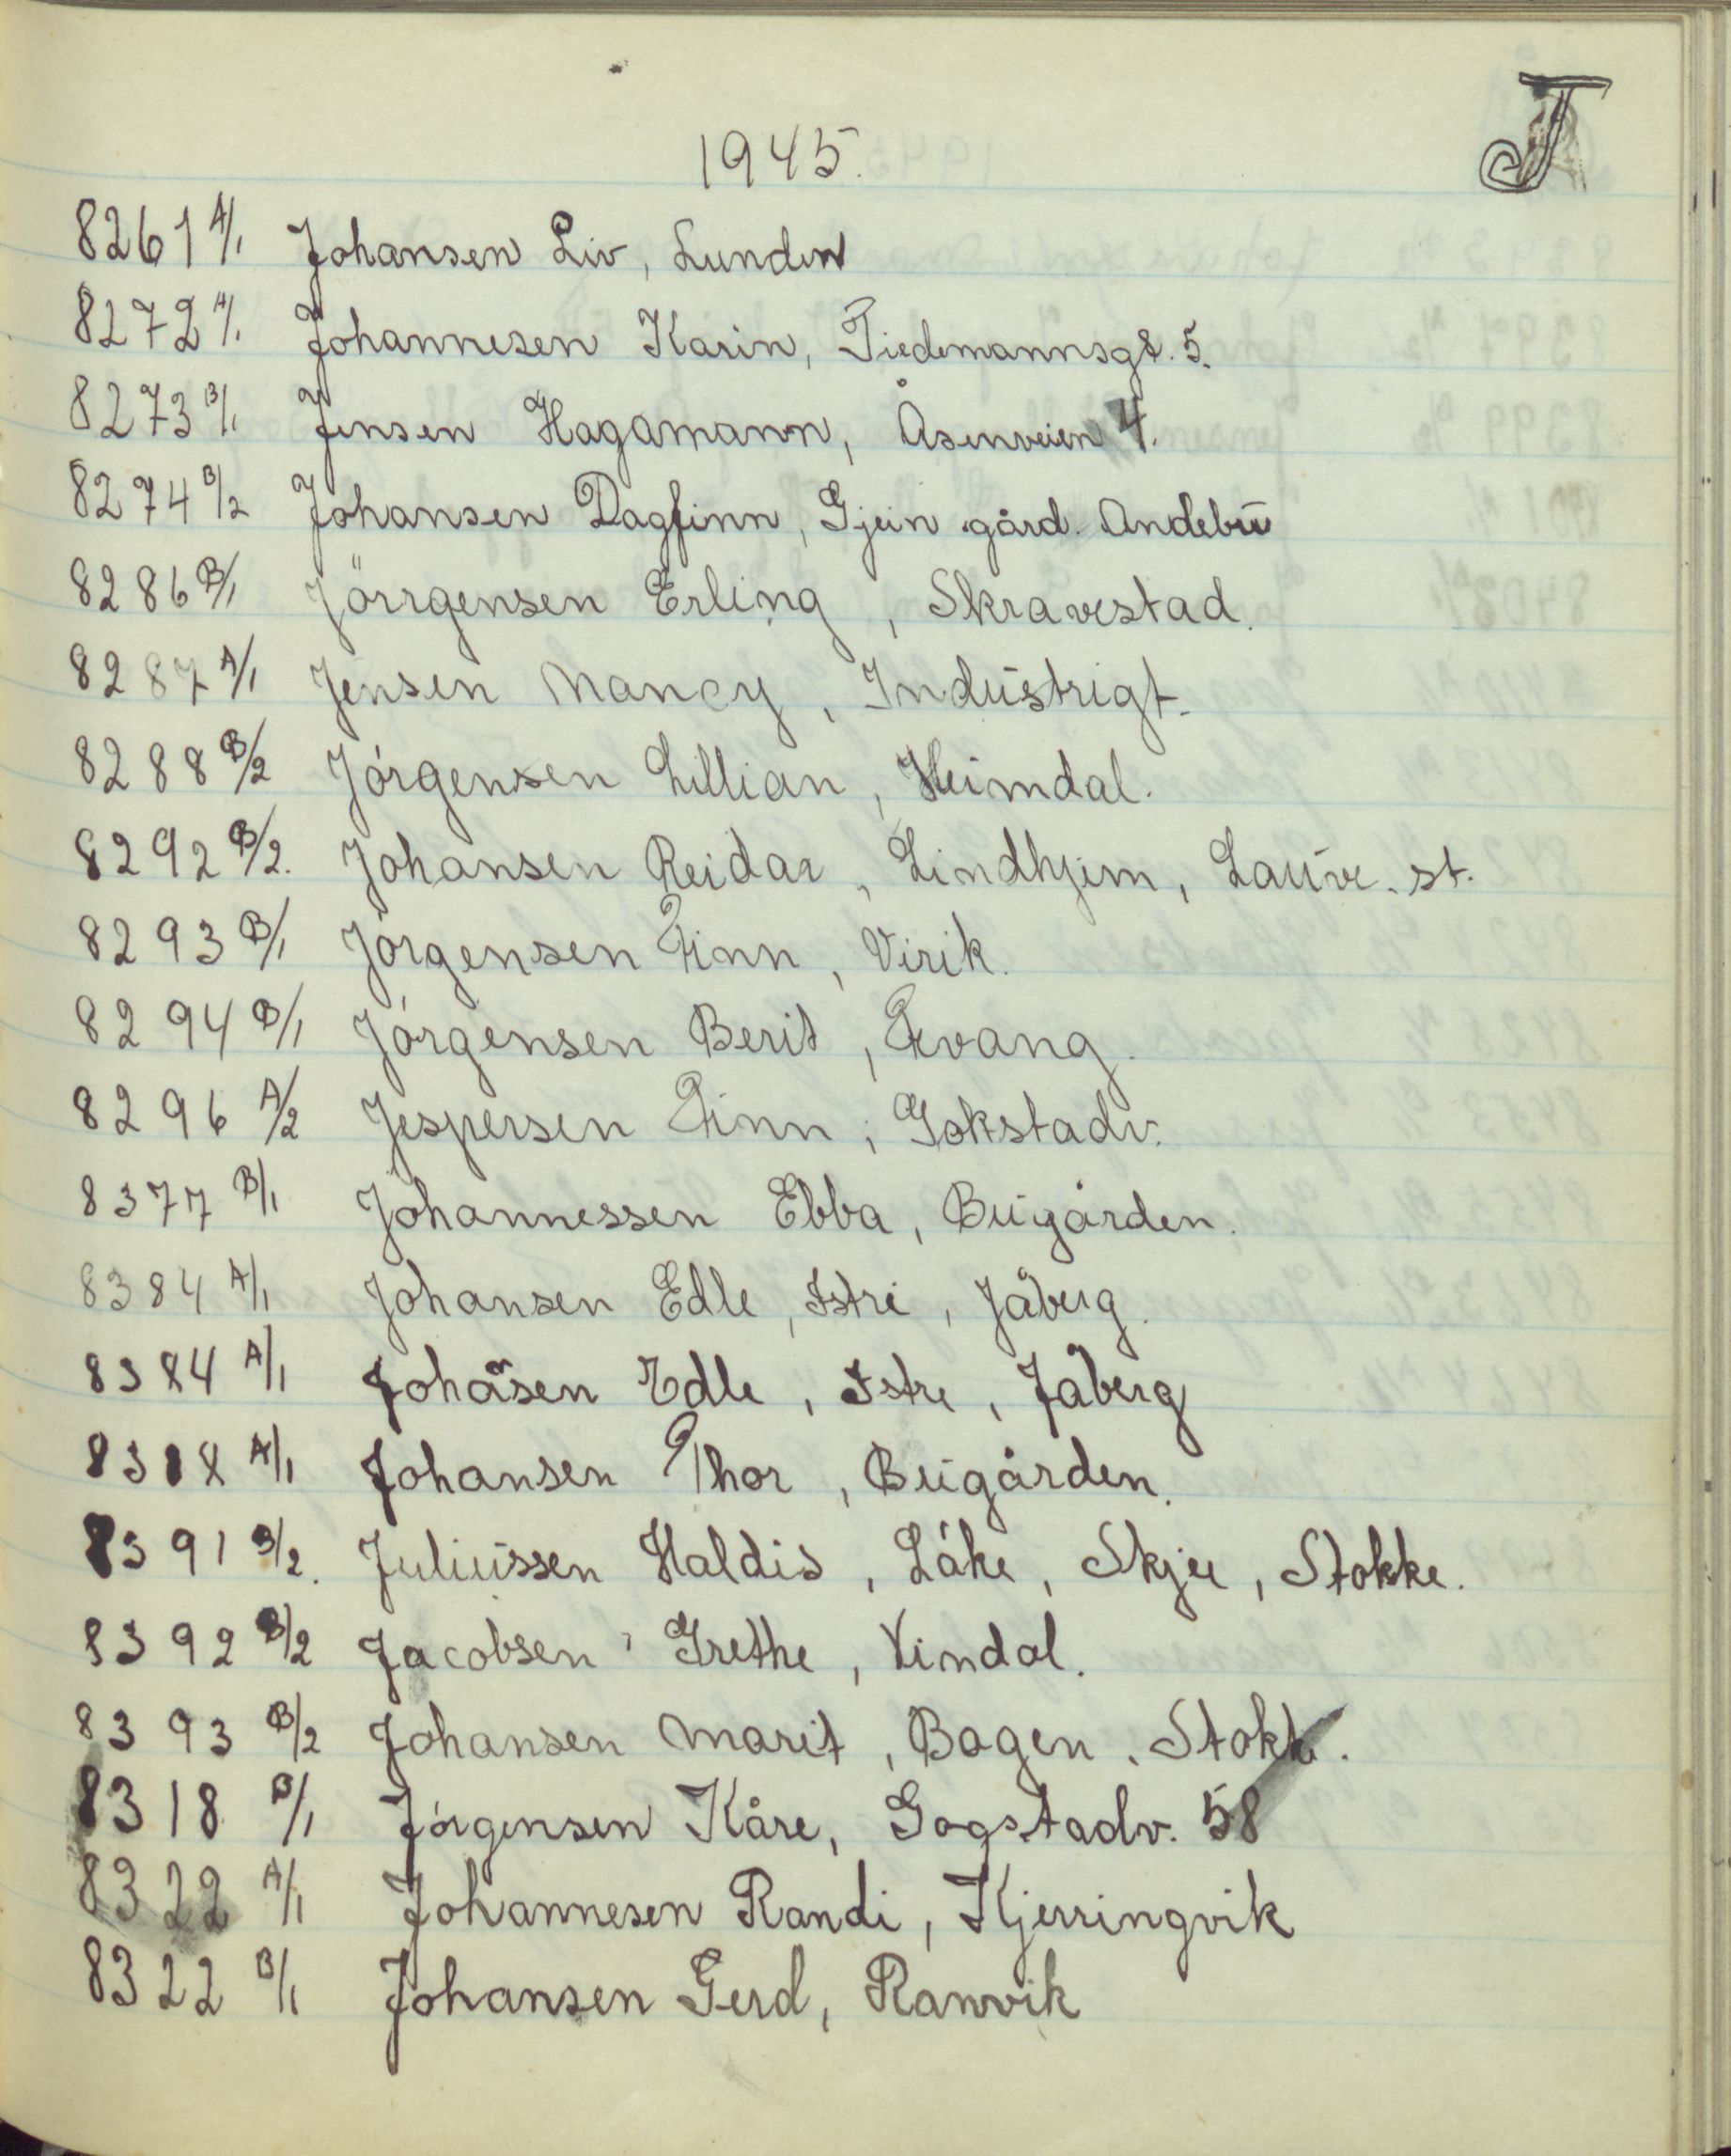 J
1945.
8261 A/1 Johansen Liv, Lunden
8272 A/1 Johannesen Karin, Tiedemannsgt. 5.
8273 B/1 Jensen Hagamann, Åsenveien 4.
8274 B/2 Johansen Dagfinn, Gjein gård. Andebu
8286 B/1 Jörrgensen Erling, Skravestad.
8287 A/1 Jensen Nancy, Industrigt.
8288 B/2 Jórgensen Lillian, Heimdal.
8292 B/2. Johansen Reidar, Lindhjem, Lauve. st.
8293 B/1 Jórgensen Finn, Virik.
8294 B/1 Jórgensen Berit, Fevang.
8296 A/2 Jespersen Finn, Gokstadv.
8377 B/1 Johannessen Ebba, Bugården.
8384 A/1 Johansen Edle, Istre, Jåberg.
8384 A/1 Johāsen Edle, Istre, Jåberg
8388 A/1 Johansen Thor, Bugården.
8391 B/2. Juliussen Haldis, Låke, Skjee, Stokke.
8392 B/2 Jacobsen, Grethe, Vindal.
8393 B/2 Johansen Marit, Bogen, Stokke.
8318 B/1 Jórgensen Kåre, Gogstadv. 58
8322 A/1 Johannesen Randi, Kjerringvik
8322 B/1 Johansen Gerd, Ranvik